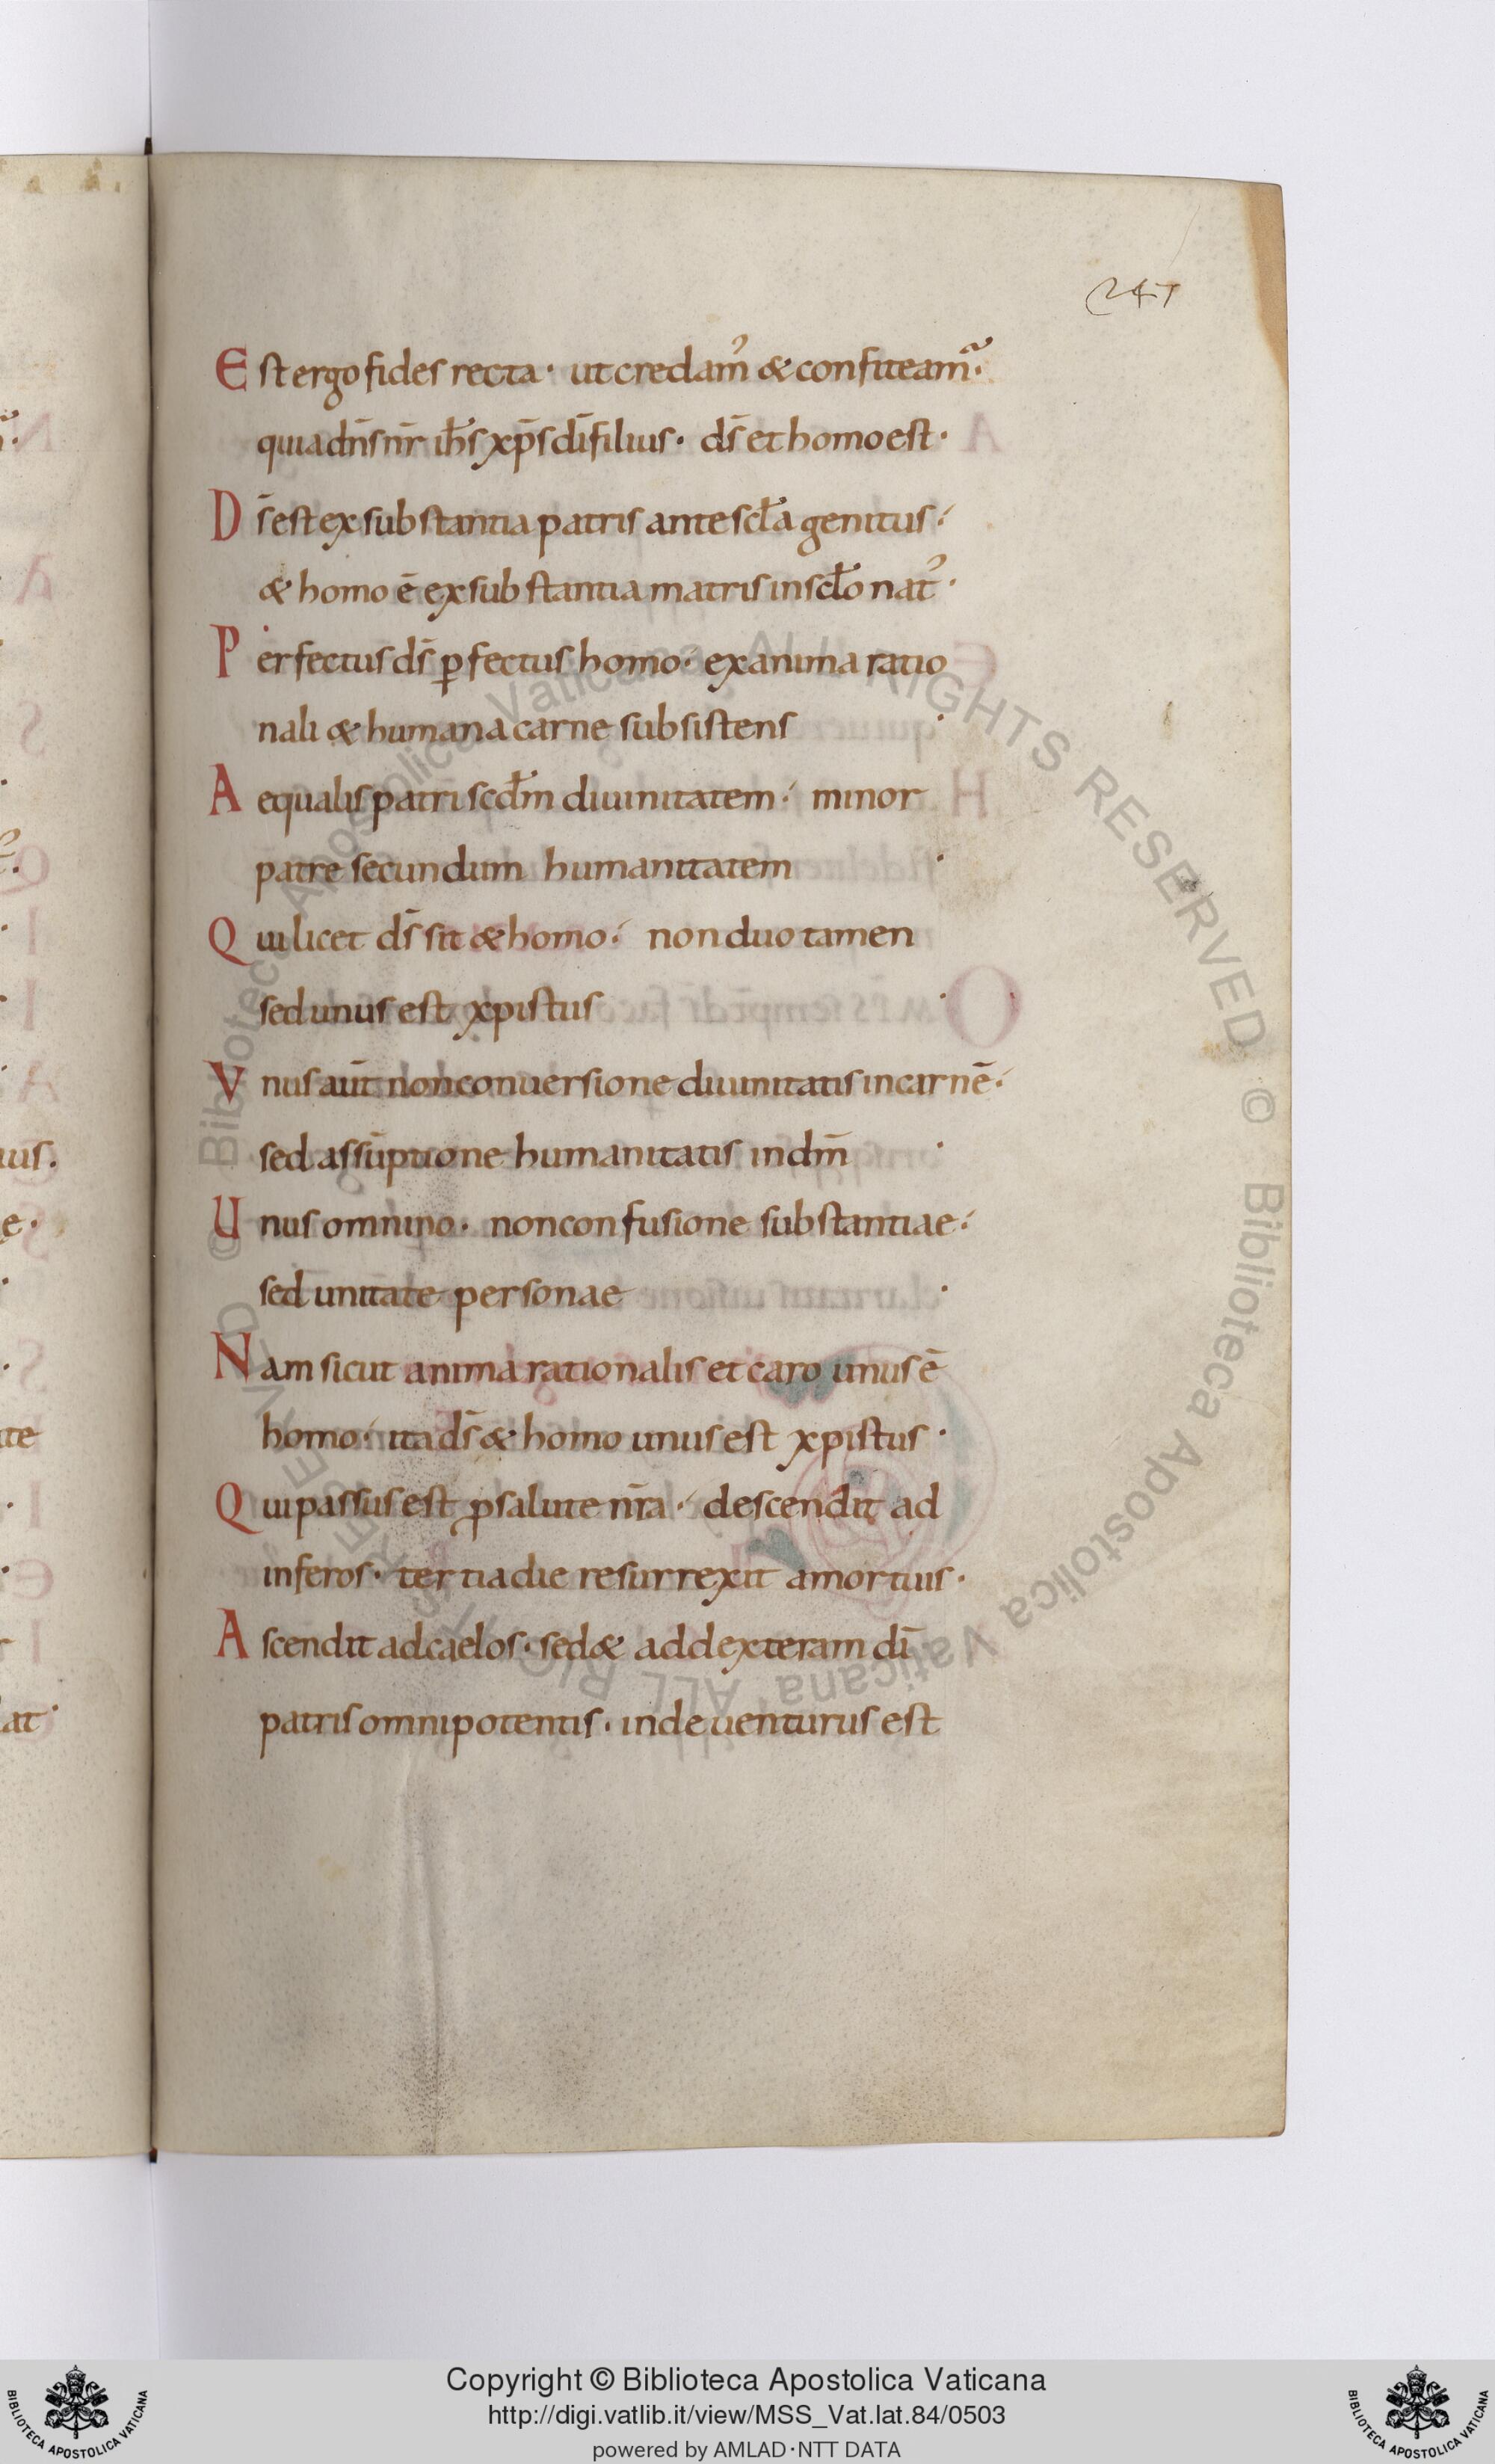 247
Est ergo fides recta· ut credam᾽ & confiteam᷑·
quia dn̄s nr̄ ih̄s xp̄s dī filius· ds̄ et homo est·
Ds̄ est ex substantia patris ante scl̄a genitus·
& homo ē ex substantia matris in scl̄o nat᾽·
Perfectus ds̄ ꝑfectus homo· ex anima ratio
nali & humana carne subsistens·
Aequalis patri scd̄m diuinitatem· minor
patre secundum humanitatem·
Qui licet ds̄ sit & homo· non duo tamen
sed unus est xpistus·
Vnus aūt non conuersione diuinitatis in carnē·
sed assūptione humanitatis in dm̄·
Unus omnino· non confusione substantiae·
sed unitate personae·
Nam sicut anima rationalis et caro unus ē
homo· ita ds̄ & homo unus est xpistus·
Qui passus est ꝓ salute nr̄a· descendit ad
inferos· tertia die resurrexit a mortuis·
Ascendit ad caelos· sed& ad dexteram dī
patris omnipotentis· inde uenturus est
Copyright © Biblioteca Apostolica Vaticana
http://digi.vatlib.it/view/MSS_Vat.lat.84/0503
powered by AMLAD·NTT DATA